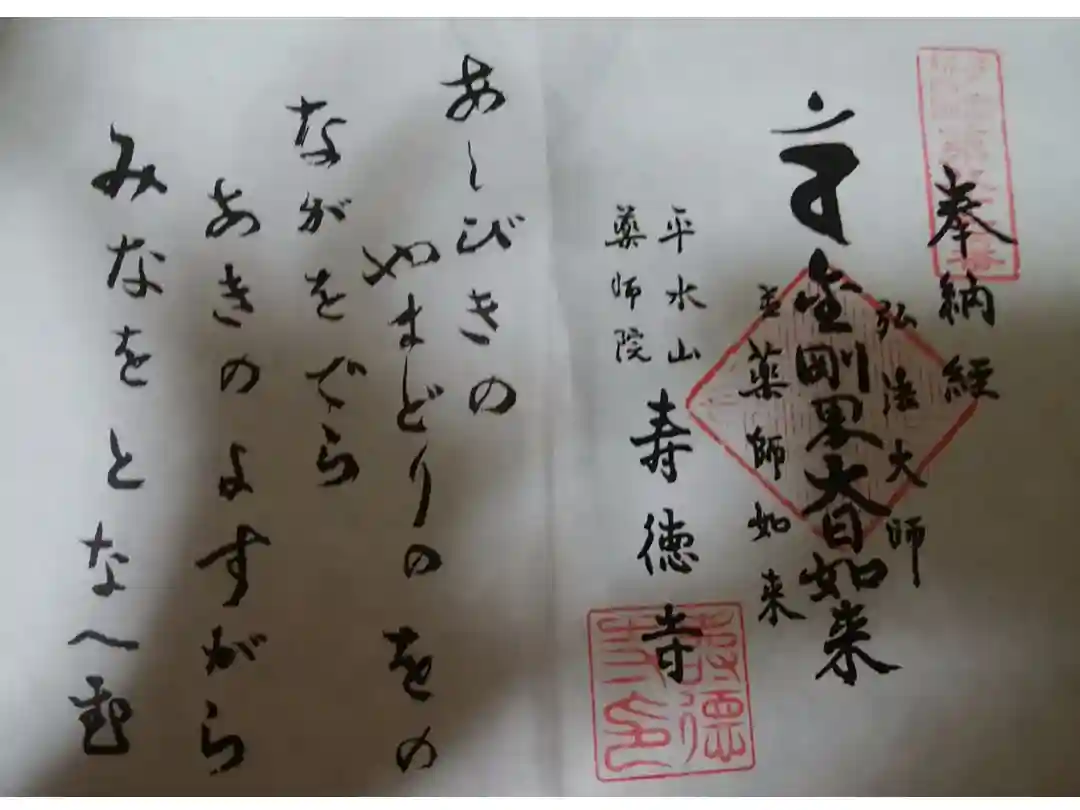 奉納経
弘法大師
金剛界大日如来
並薬師如来
平水山
薬師院
寿徳寺
あしびきの
やまどりのをの
ながをでら
あきのよすがら
みなをとなへ